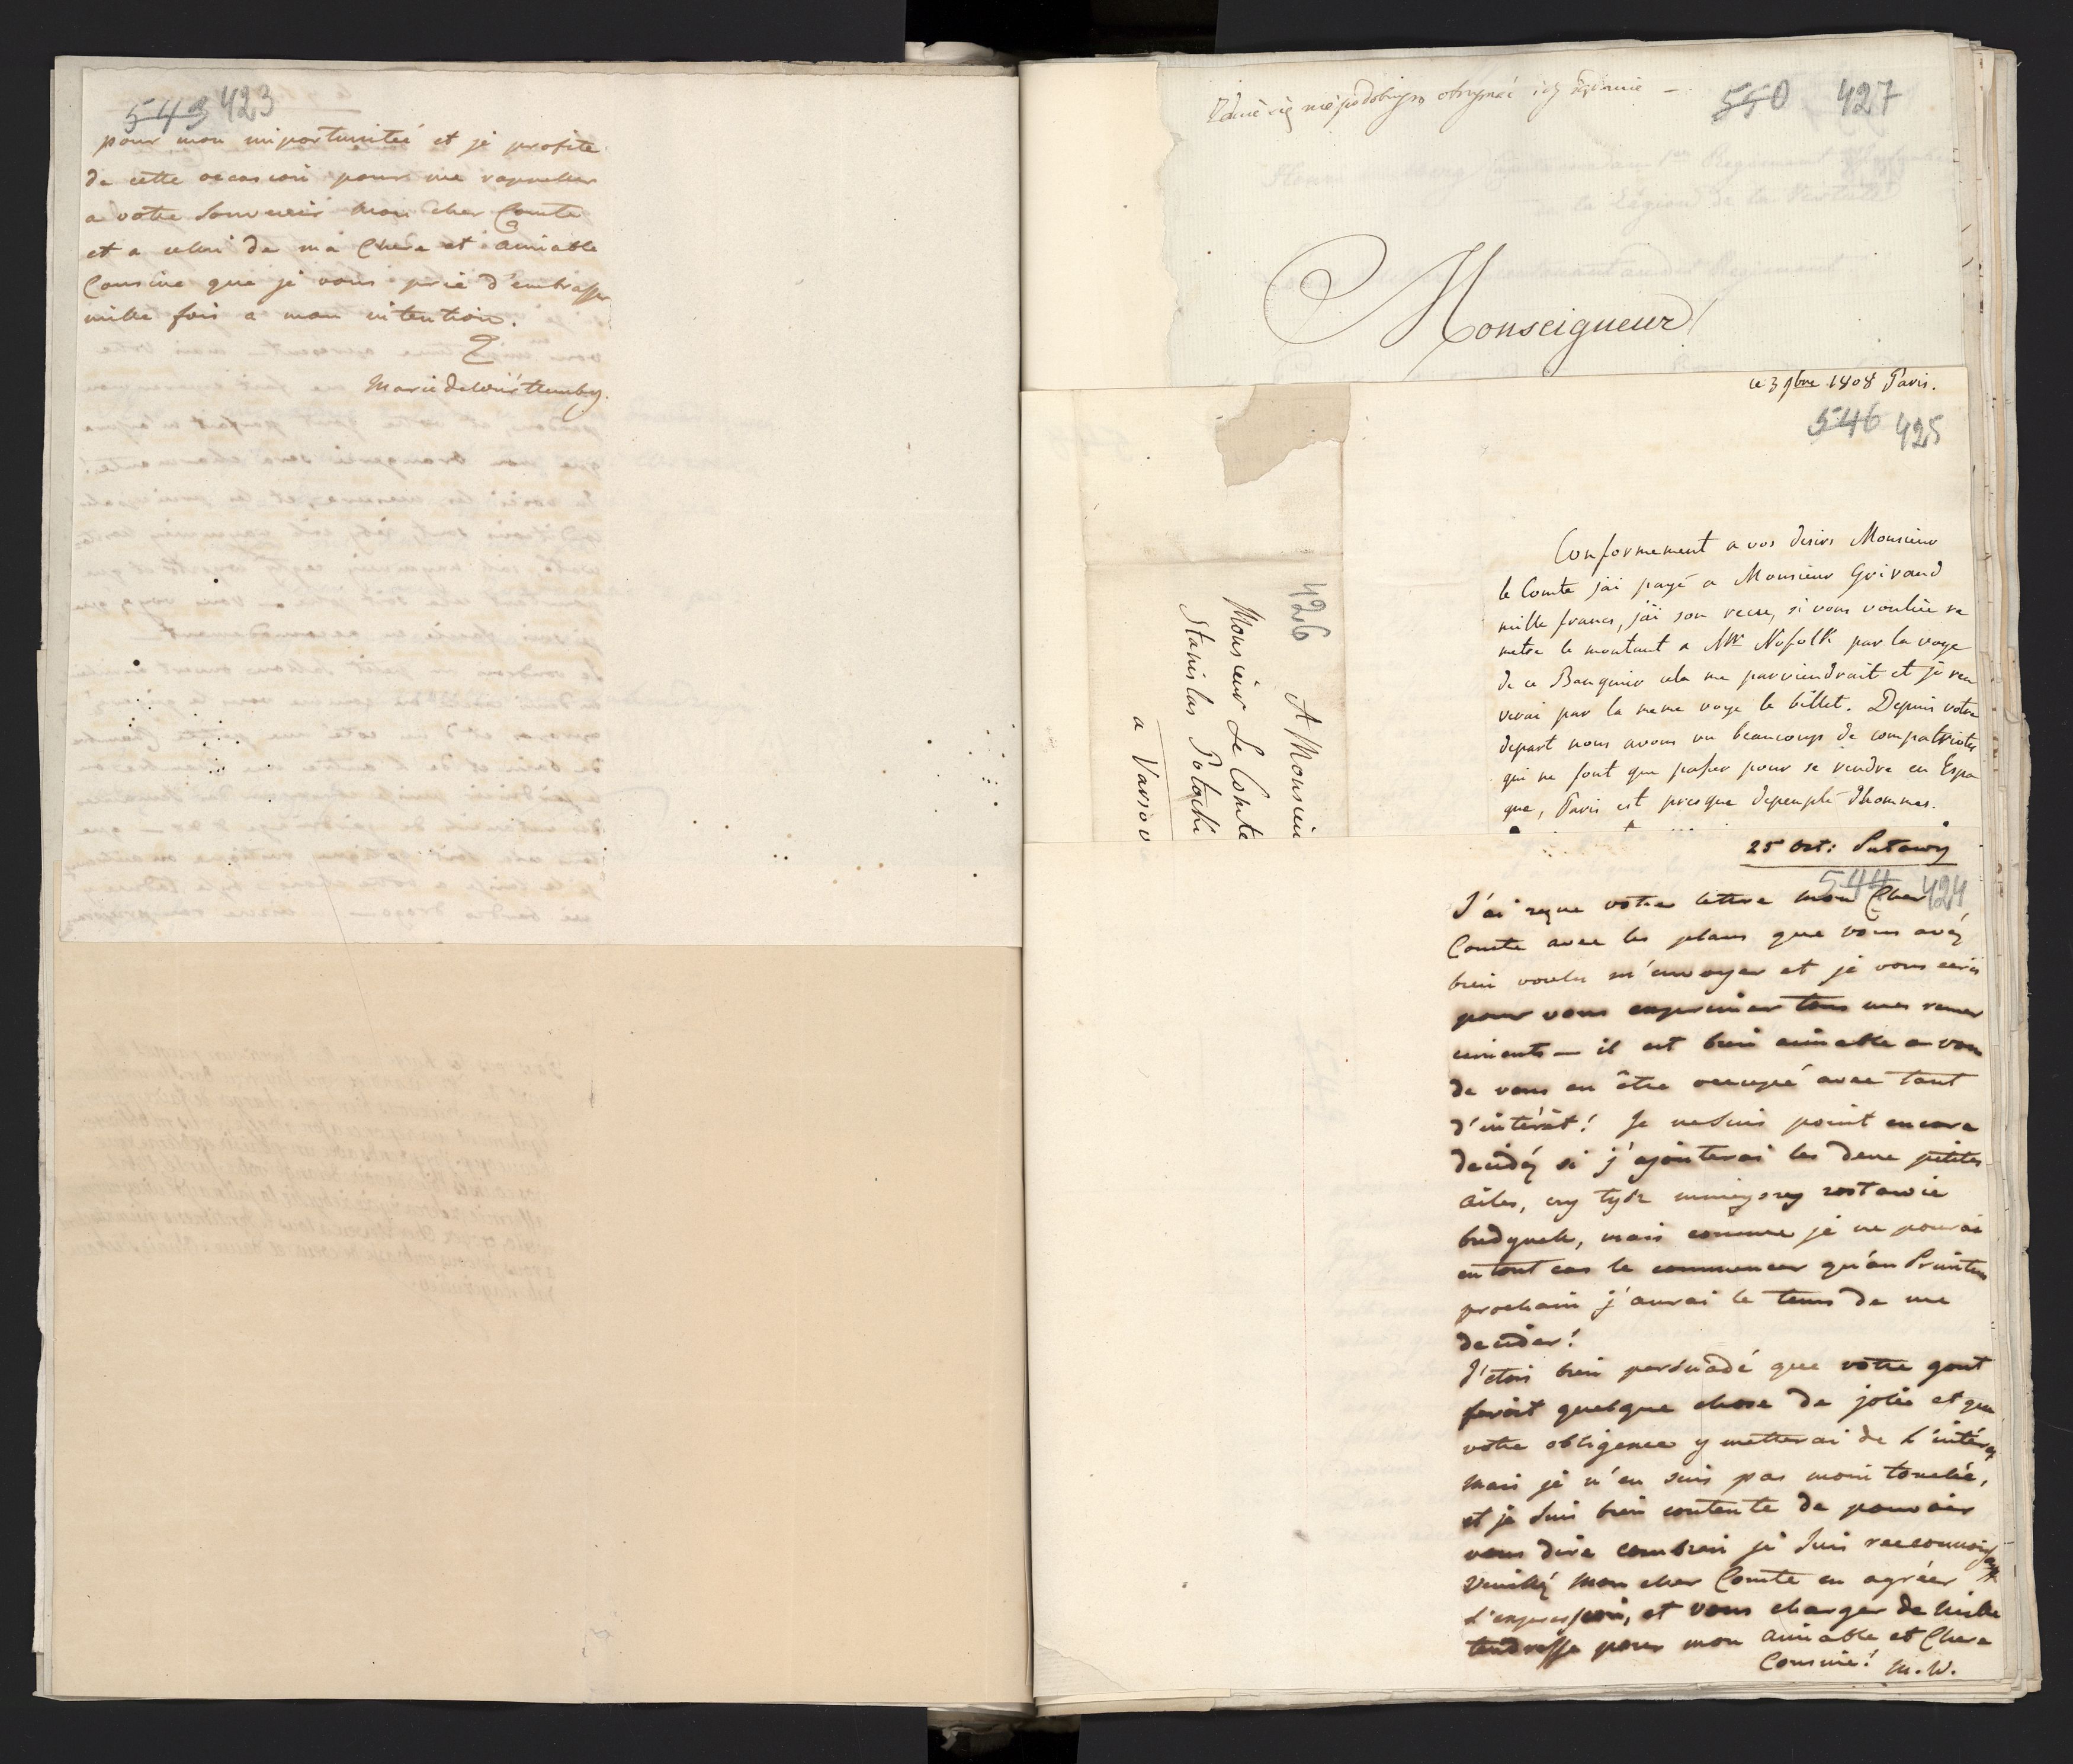 543 423
pour mon importunitée et je profite
de cette occasion pour me rappeller
a votre Souvenir Mon cher Comte
et a celui de ma Chere et Aimable
Cousine que je vous prie d'embrasser
mille fois a mon intention.
Marie de Würtemberg.
550 427
Monseigneur!
ce 3 9bre 1808 Paris.
546 425
Conformement a vos desirs Monsieur
le Comte j'ai payé a Monsieur Grivaud
mille francs, j'ai son recue, si vous vouliée re
metre le montant a Mr Nofolk par la voye
de ce Banquier cela me parviendrait et je ren
verai par la meme voye le billet. Depuis votre
depart nous avons vu beaucoup de compatriotes
qui ne font que passer pour se rendre en Espa
gne, Paris est presque depeuplé d'hommes.
426
A Monsieu
Monsieur Le Comte
Stanislas Potocki
a Varsov
25 Oct: Pulawy
544 424
J'ai reçue votre lettre mon Cher
Comte avec les plans que vous avéz
bien voulu m'envoyer et je vous ecris
pour vous exprimer tous mes remer
ciments — il est bien aimable a vous
de vous en être occupé avec tant
d'intérêt! Je ne suis point encore
decidéz si j'ajouterai les deux petites
ailes, czy tylk mnieyszy zostawie
budynek, mais comme je ne pourai
en tout cas le commencer qu'au Printems
prochain j'aurai le tems de me
decider!
J'étois bien persuadé que votre gout
feroit quelque chose de jolie et que
votre obligence y metterai de l'intérêt
mais je n'en suis pas moin touchée,
et je suis bien contente de pouvoir
vous dire combien je suis reconnoissante
Veuilléz mon cher Comte en agréer
l'expression, et vous charger de mille
tendresse pour mon aimable et Chere
Cousine! M.W.